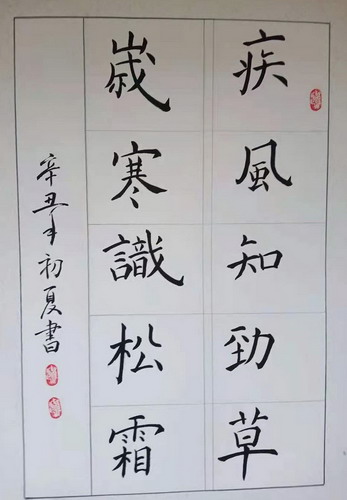 疾風知勁草
歲寒識松霜
辛丑年初夏書